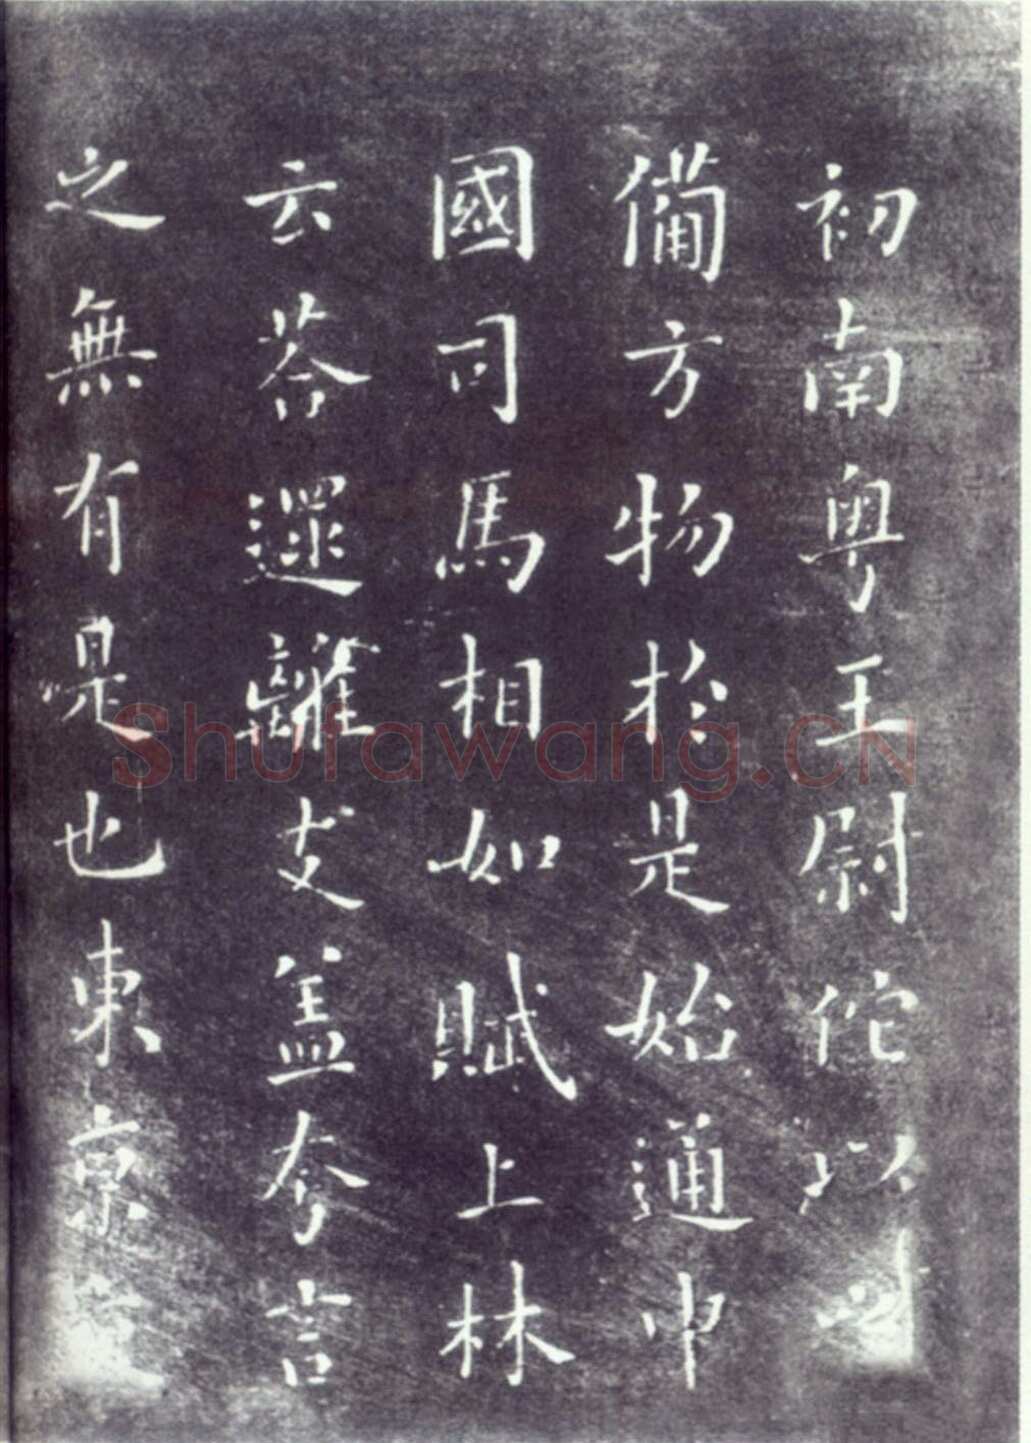 初南粵王尉佗以
備方物於是始通中
國司馬相如賦上林
云荅遝離支盖夸言
之無有是也東京
Shufawang.CN